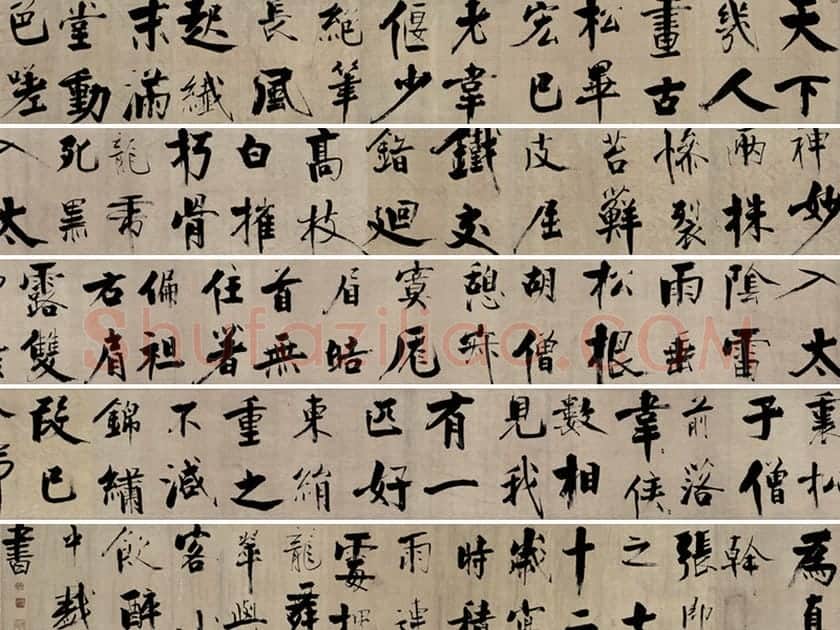 天下
幾人
畫古
松畢
宏已
老韋
偃少
絕筆
長風
起纖
末滿
堂動
色嗟
神妙
兩株
慘裂
苔蘚
皮屈
鐵交
錯迴
高枝
白摧
朽骨
龍虎
死黑
入太
入太
陰雷
雨垂
松根
胡僧
憩寂
寞厖
眉皓
首無
住著
偏袒
右肩
露雙
裏松
子僧
前落
韋侯
數相
見我
有一
匹好
東絹
重之
不減
錦繡
段已
為直
幹
張即
之七
十二
歲寫
時積
雨連
霉
龍舞
華與
客小
飲醉
中戲
書
Shufaziliao.COM